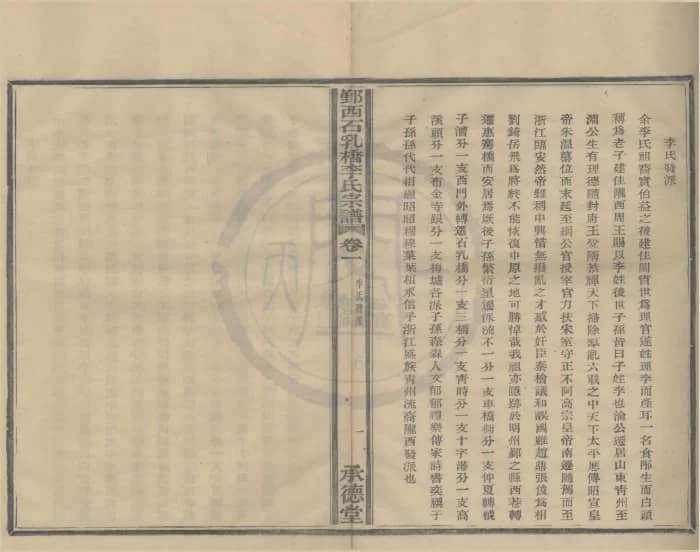 李氏發派
余李氏祖裔實伯益之後建住閒實世爲理官遂姓理李而產耳一名食所生而白頭
稱爲老子建住隴西周王賜以李姓後世子孫皆曰子姓李也淪公遷居山東靑州至
淵公生有理德隨封唐王受隋恭禪天下掃除羣亂六載之中天下太平歷傳昭宣皇
帝朱溫簒位而末延至 公官授宰官力扶宋室守正不阿高宗皇帝南遷隨駕而至
浙江臨安然帝雖稱中興惜無撥亂之才惑於奸臣秦檜議和誤國雖趙鼎張俊爲相
劉錡岳飛爲將終不能恢復中原之地可勝悼哉我祖亦隱跡於明州鄞之縣西 轉
遷惠 橋而安居焉厥後子孫繁衍星遷派流不一分一支車橋 分一支仲夏轉
子 分一支西門外轉遷石乳橋分一支三橋分一支靑 分一支十字港分一支高
溪頭分一支布金寺跟分一支梅墟各派子孫森森人文郁郁禮樂傳家詩書奕禩子
子孫孫代代相繼昭昭穆穆葉 相承信乎浙江盛族靑州流裔隴西發派也
鄞西石乳橋李氏宗譜 卷一 李氏發派 一 承德堂